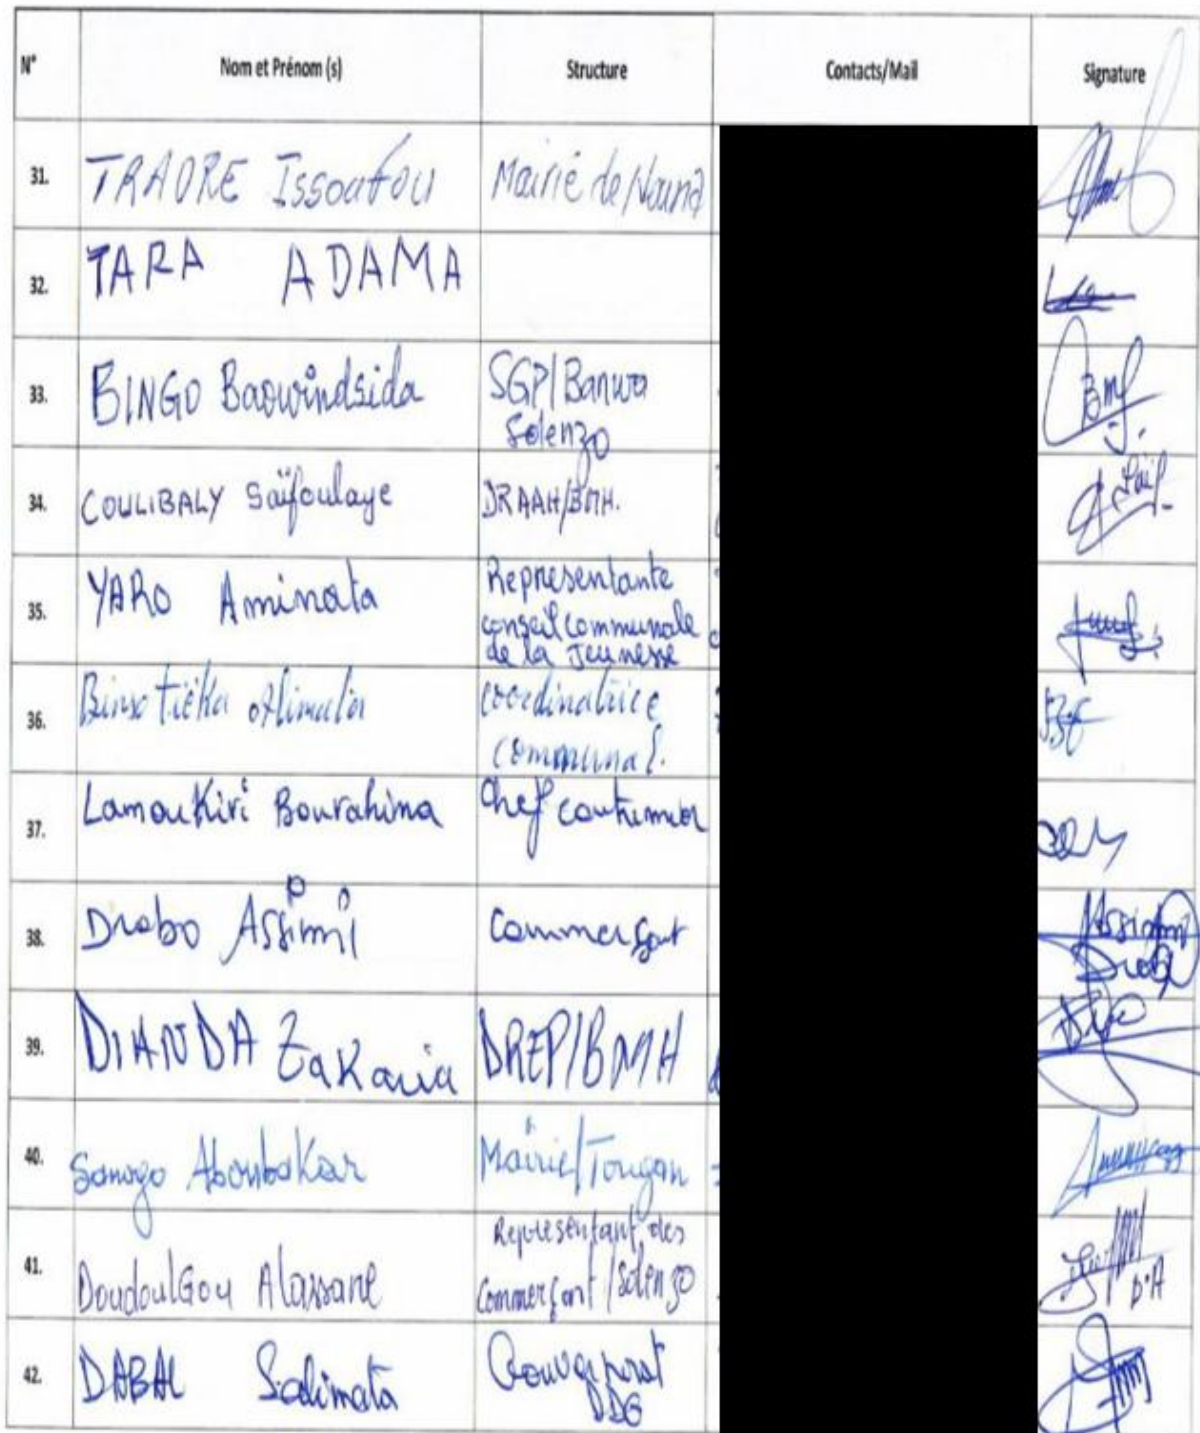 N° Nom et Prénom (s) Structure Contacts/Mail Signature
31. TRAORE Issoufou Mairie de Nouna
32. TARA ADAMA
33. BINGO Baowindsida SGP/Banwa
Solenzo
34. COULIBALY Saïfoulaye DRAAH/BMH.
35. YARO Aminata Représentante
conseil communale
de la Jeunesse
36. coordinatrice
communal.
37. LamouKiri Bourahima Chef coutumier
38. Drabo Assimi Commerçant
Assimi
Drabo
39. DIANDA ZaKaria DREP/BMH
40. Sanogo AboubaKar Mairie/Tougan
41. DoudoulGou Alassane Représentant des
Commerçant/Solenzo
D.A
42. Salimata Gouvernorat